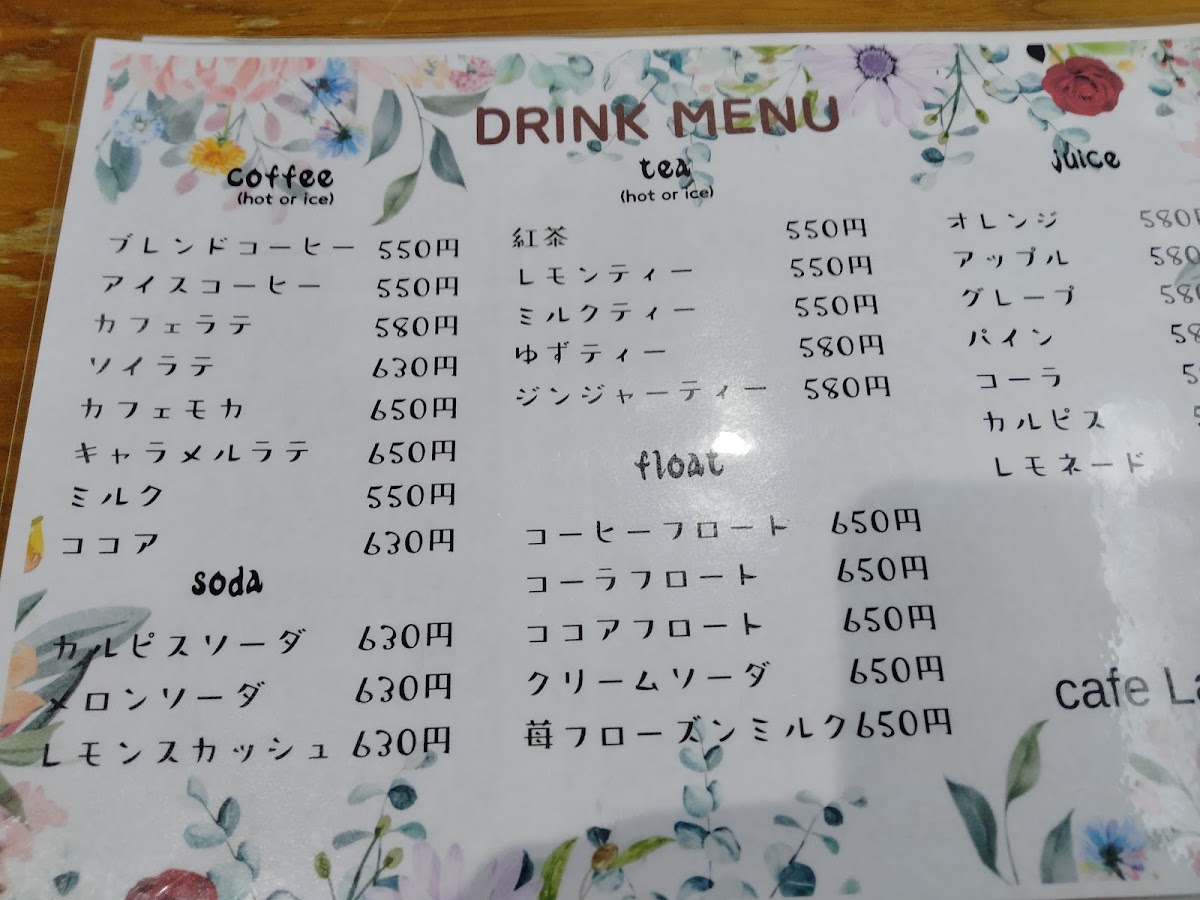 DRINK MENU
coffee
(hot or ice)
ブレンドコーヒー 550円
アイスコーヒー 550円
カフェラテ 580円
ソイラテ 630円
カフェモカ 650円
キャラメルラテ 650円
ミルク 550円
ココア 630円
soda
カルピスソーダ 630円
メロンソーダ 630円
レモンスカッシュ 630円
tea
(hot or ice)
紅茶 550円
レモンティー 550円
ミルクティー 550円
ゆずティー 580円
ジンジャーティー 580円
float
コーヒーフロート 650円
コーラフロート 650円
ココアフロート 650円
クリームソーダ 650円
苺フローズンミルク 650円
juice
オレンジ 580円
アップル 580
グレープ 580
パイン
コーラ
カルピス
レモネード
cafe